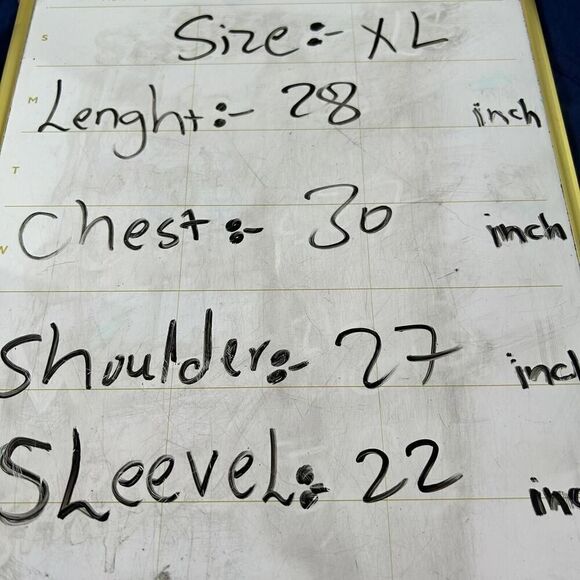 Size:- XL
Lenght:- 28 inch
Chest:- 30 inch
Shoulder:- 27 incl
SLeeveL:- 22 inc
S
M
T
W